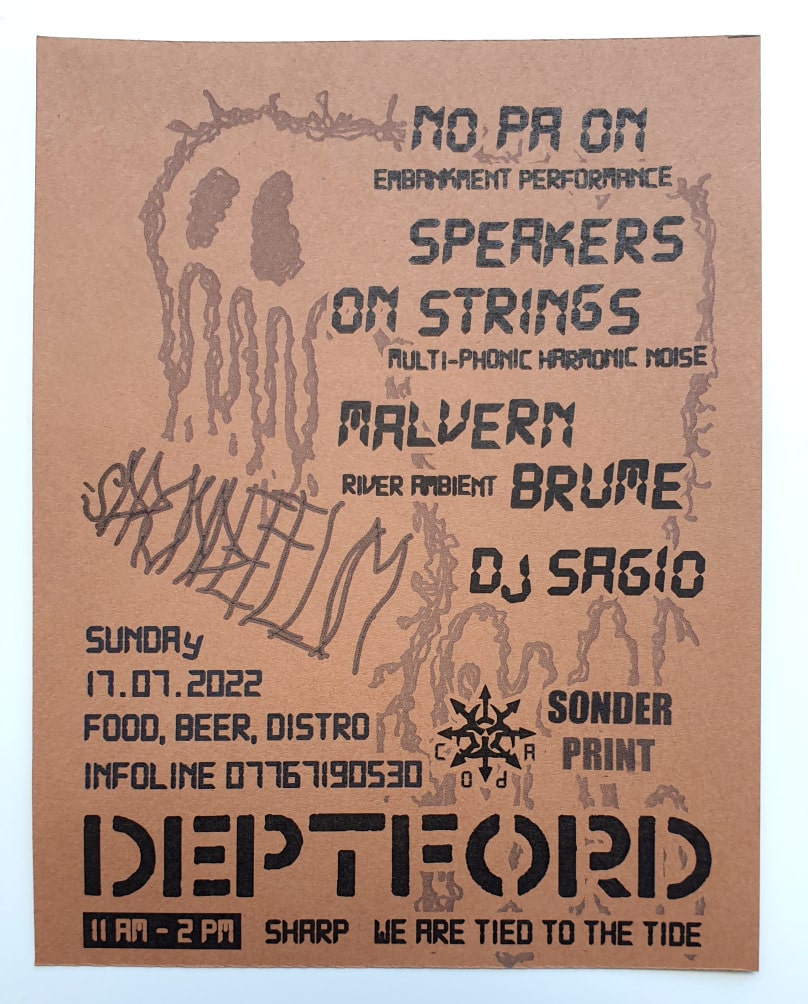 NO PA ON
EMBANKMENT PERFORMANCE
SPEAKERS
ON STRINGS
MULTI-PHONIC HARMONIC NOISE
MALVERN
RIVER AMBIENT BRUME
DJ SAGIO
SUNDAy
17.07.2022
FOOD, BEER, DISTRO
INFOLINE 07767190530
C O P A
SONDER
PRINT
DEPTFORD
11 AM - 2 PM SHARP WE ARE TIED TO THE TIDE